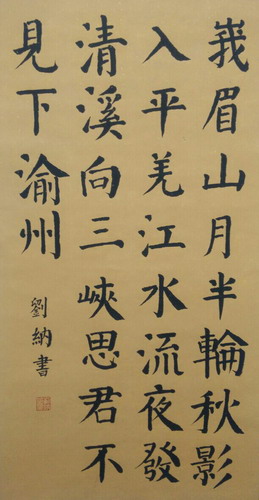 峩眉山月半輪秋影
入平羌江水流夜發
清溪向三峽思君不
見下渝州
劉納書